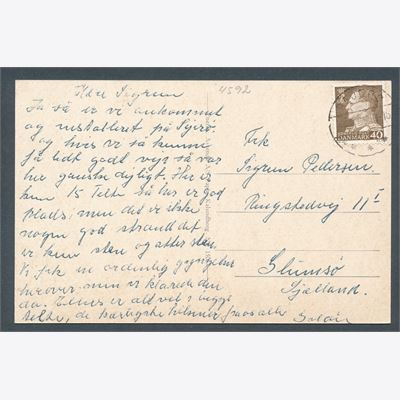 Kære Sigrun
Ja så er vi ankommet
og installeret på Sejrø.
Og hvis vi så kunne
få lidt godt vejr så var
her ganske dejligt. Her er
kun 15 Telte så her er god
Plads, men det er ikke
nogen god strand det
er kun sten og atter sten.
Vi fik en ordenlig gyngetur
herover men vi klarede den
da. Ellers er alt vel i begge
telte, de kærligste hilsner fra os alle
4592
Frk
Sigrun Pedersen.
Ringstedvej 11 I
Glumsø
Sjælland.
DANMARK 40